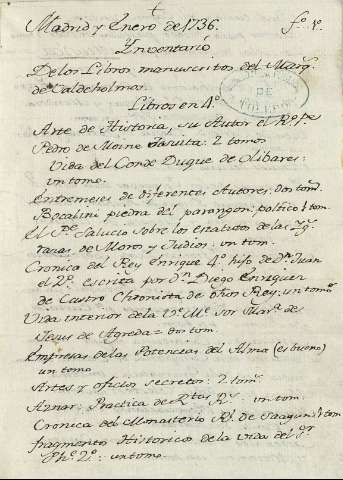 Madrid y Enero de 1736. fo. 1o.
Inventario
De los Libros manuscritos del Marqs.
de Valdeholmar.
Libros en 4o.
Arte de Historia, su Autor el Ro. Pe.
Pedro de Moine Jesuita: 2 tomos
Vida del Conde Duque de Olibares:
un tomo.
Entremeses de diferentes Autores: dos toms.
Bocalini piedra del parangon politico 1 tom.
El Pe. Salucio sobre los estatutos de las
razas de Moros y Judios: un tom.
Cronica del Rey Enrique 4o. hijo de Dn. Juan
el 2o. escrita por Dn. Diego Enriquez
de Castro Chronista de dhos Rey: un tomo
Vida interior de la Ve. Me. Sor Mara. de
Jesus de Agreda = dos tom.
Empresas de las Potencias del Alma (es bueno)
un tomo
Artes y oficios secretos: 2 toms.
Aznar: Practica de Rtas Rs. un tom.
Cronica del Monasterio Rl. de Saagun: 1 tom
fragmento Historico de la vida del Sr.
Phe. 2o.: un tomo.